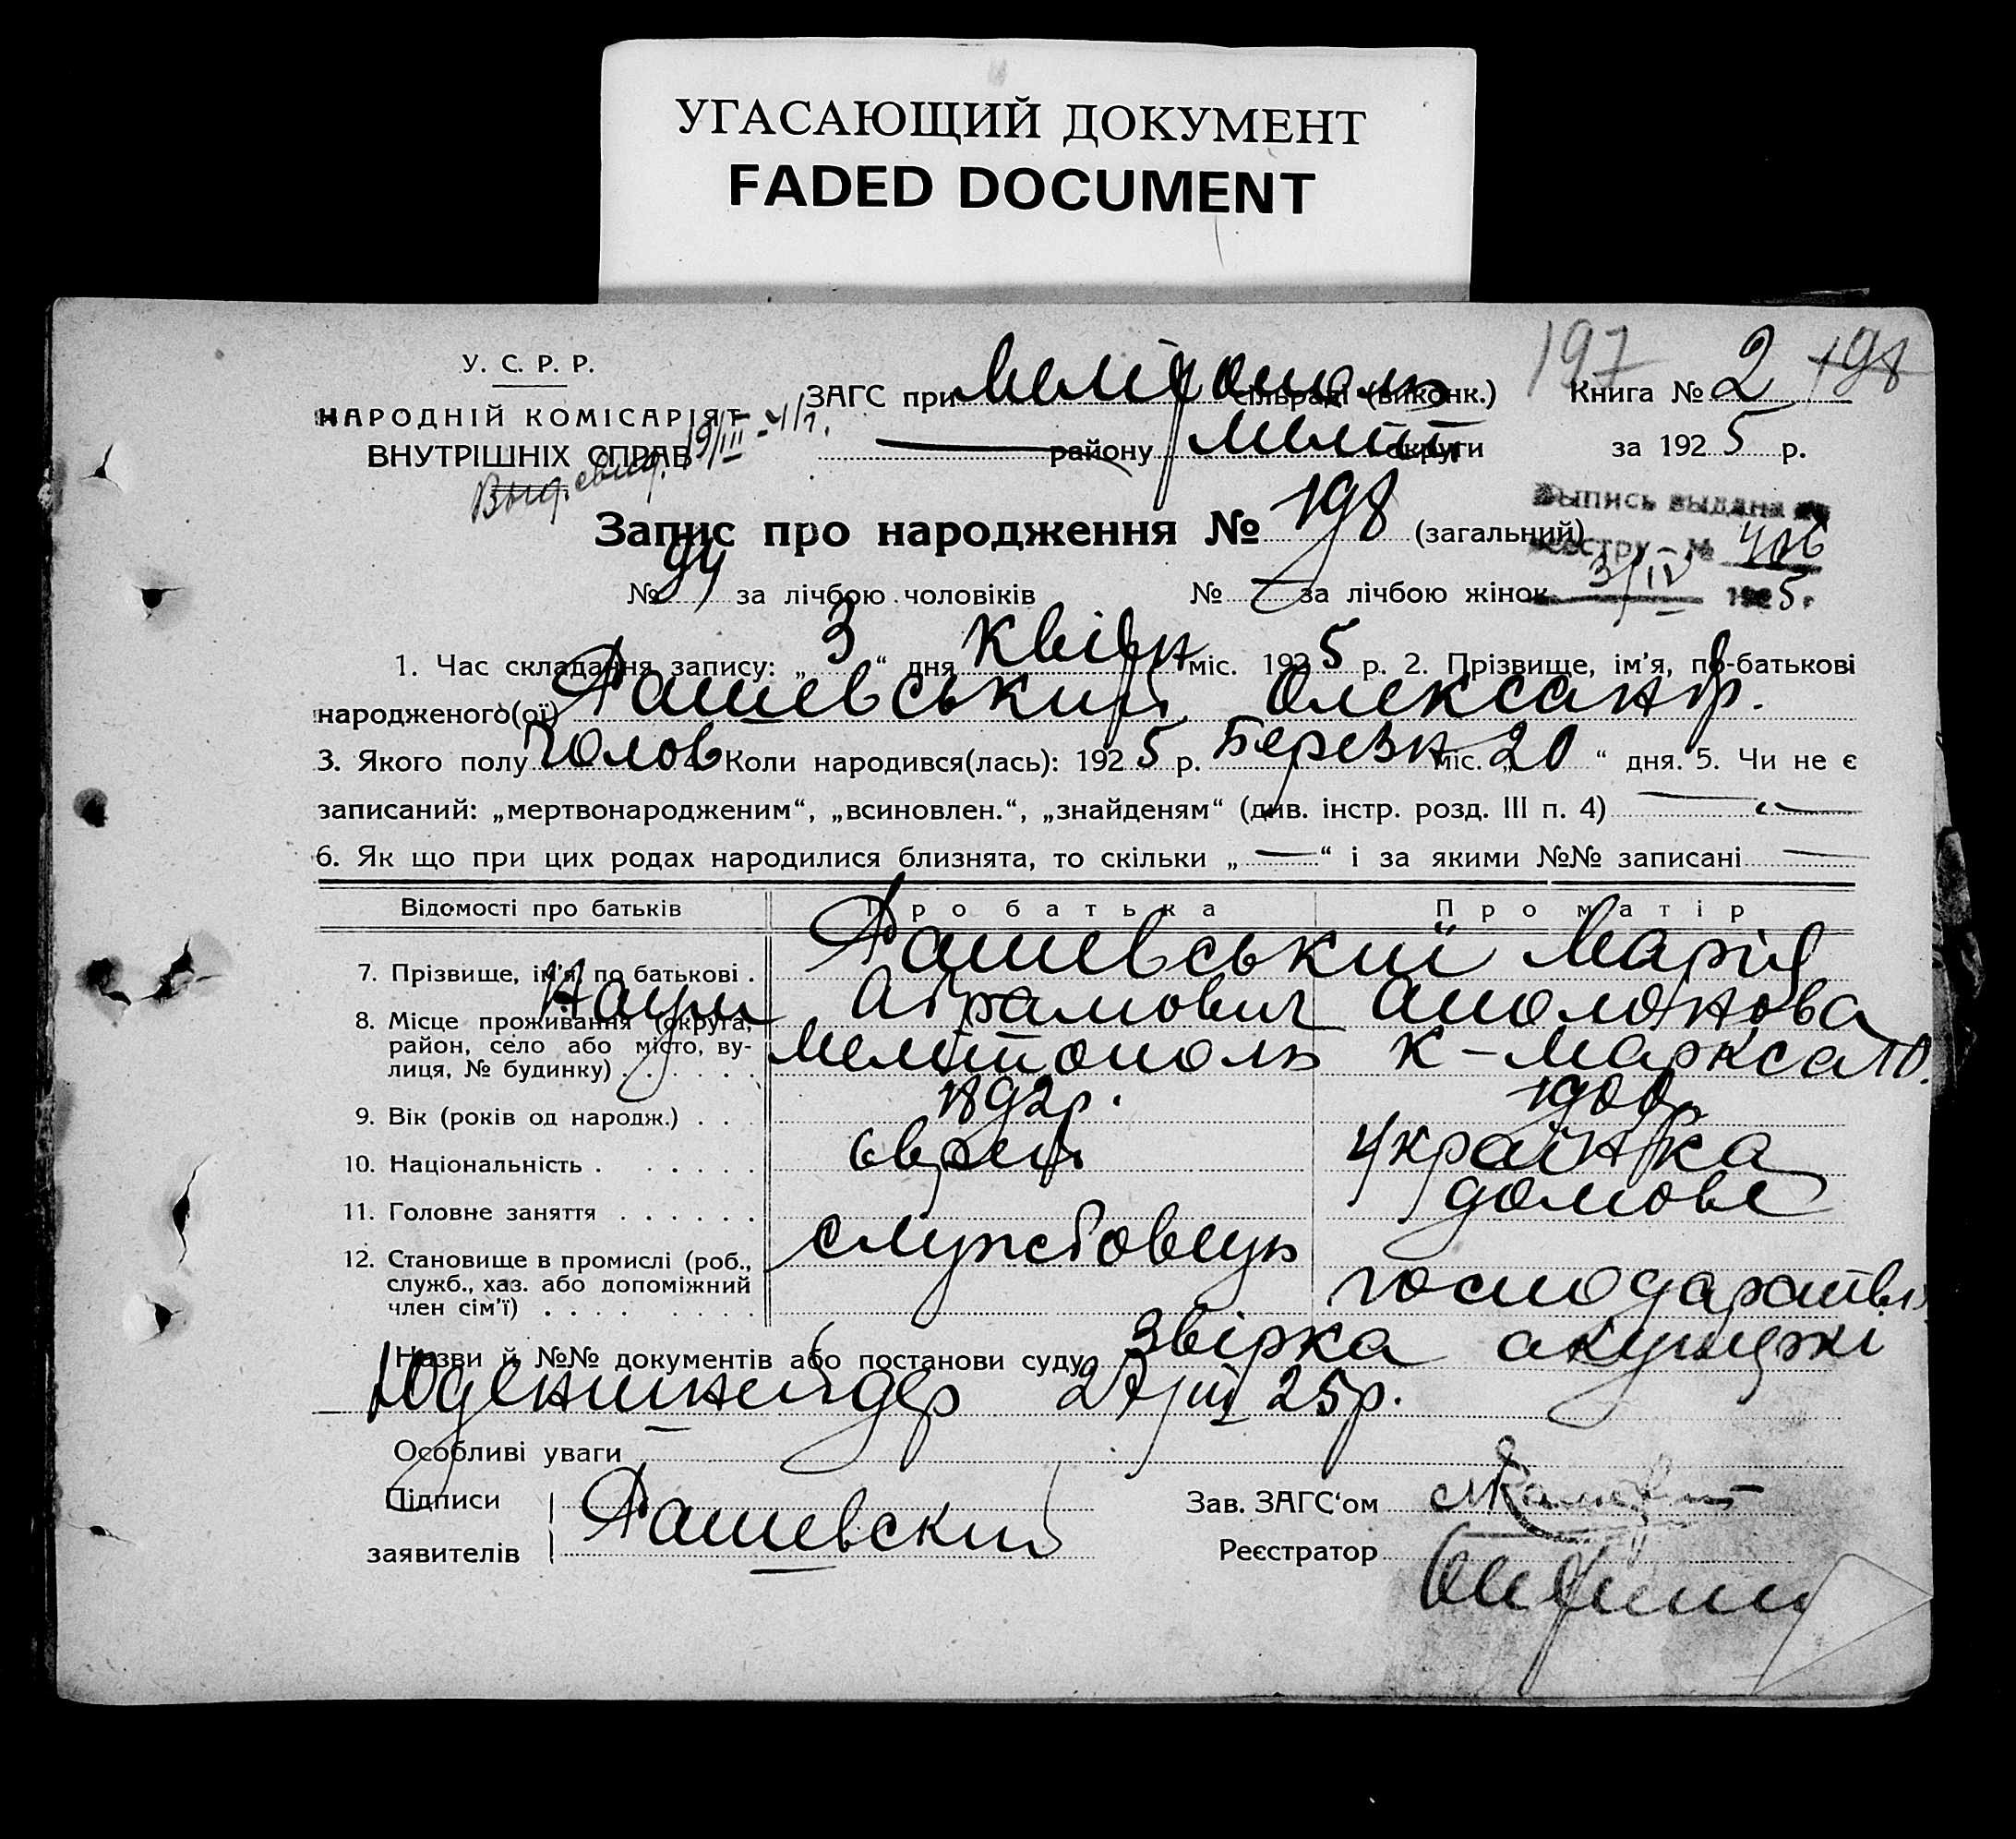 УГАСАЮЩИЙ ДОКУМЕНТ
FADED DOCUMENT
197 198
У. С. Р. Р.
НАРОДНІЙ КОМІСАРІЯТ
ВНУТРІШНІХ СПРАВ
Выд. свид. 19/III-41г.
ЗАГС при Мелітополь сільраді (виконк.)
— району Меліт округи
Книга № 2
за 1925 р.
Запис про народження № 198 (загальний)
Выпись выдана
реестру № 406
3/IV 1925 г.
№ 94 за лічбою чоловіків № — за лічбою жінок
1. Час складання запису: „3“ дня Квітн міс. 1925 р. 2. Прізвище, ім’я, по-батькові
народженого(ої) Рашевський Олександр.
3. Якого полу Чолов 4 Коли народився(лась): 1925 р. Березн міс. „20“ дня. 5. Чи не є
записаний: „мертвонародженим“, „всиновлен.“, „знайденям“ (див. інстр. розд. III п. 4) —
6. Як що при цих родах народилися близнята, то скільки „—“ і за якими №№ записані —
Відомості про батьків Про батька Про матір
7. Прізвище, ім’я, по батькові . Рашевський Марія
Наум Абрамович Аполонова
8. Місце проживання (округа,
район, село або місто, ву-
лиця, № будинку) . . . . . . Мелітополь К-Маркса 10.
9. Вік (років од народж.) . . . 1892р. 1900р.
10. Національність . . . . . . єврей українка
11. Головне заняття . . . . . . службовець домове
12. Становище в промислі (роб.,
служб., хаз. або допоміжний
член сім’ї) . . . . . . . . господарство
Назви й №№ документів або постанови суду Звірка акушерки
Юденшнейдер 27/III 25р.
Особливі уваги
Підписи
заявителів Рашевский
Зав. ЗАГС‘ом
Реєстратор